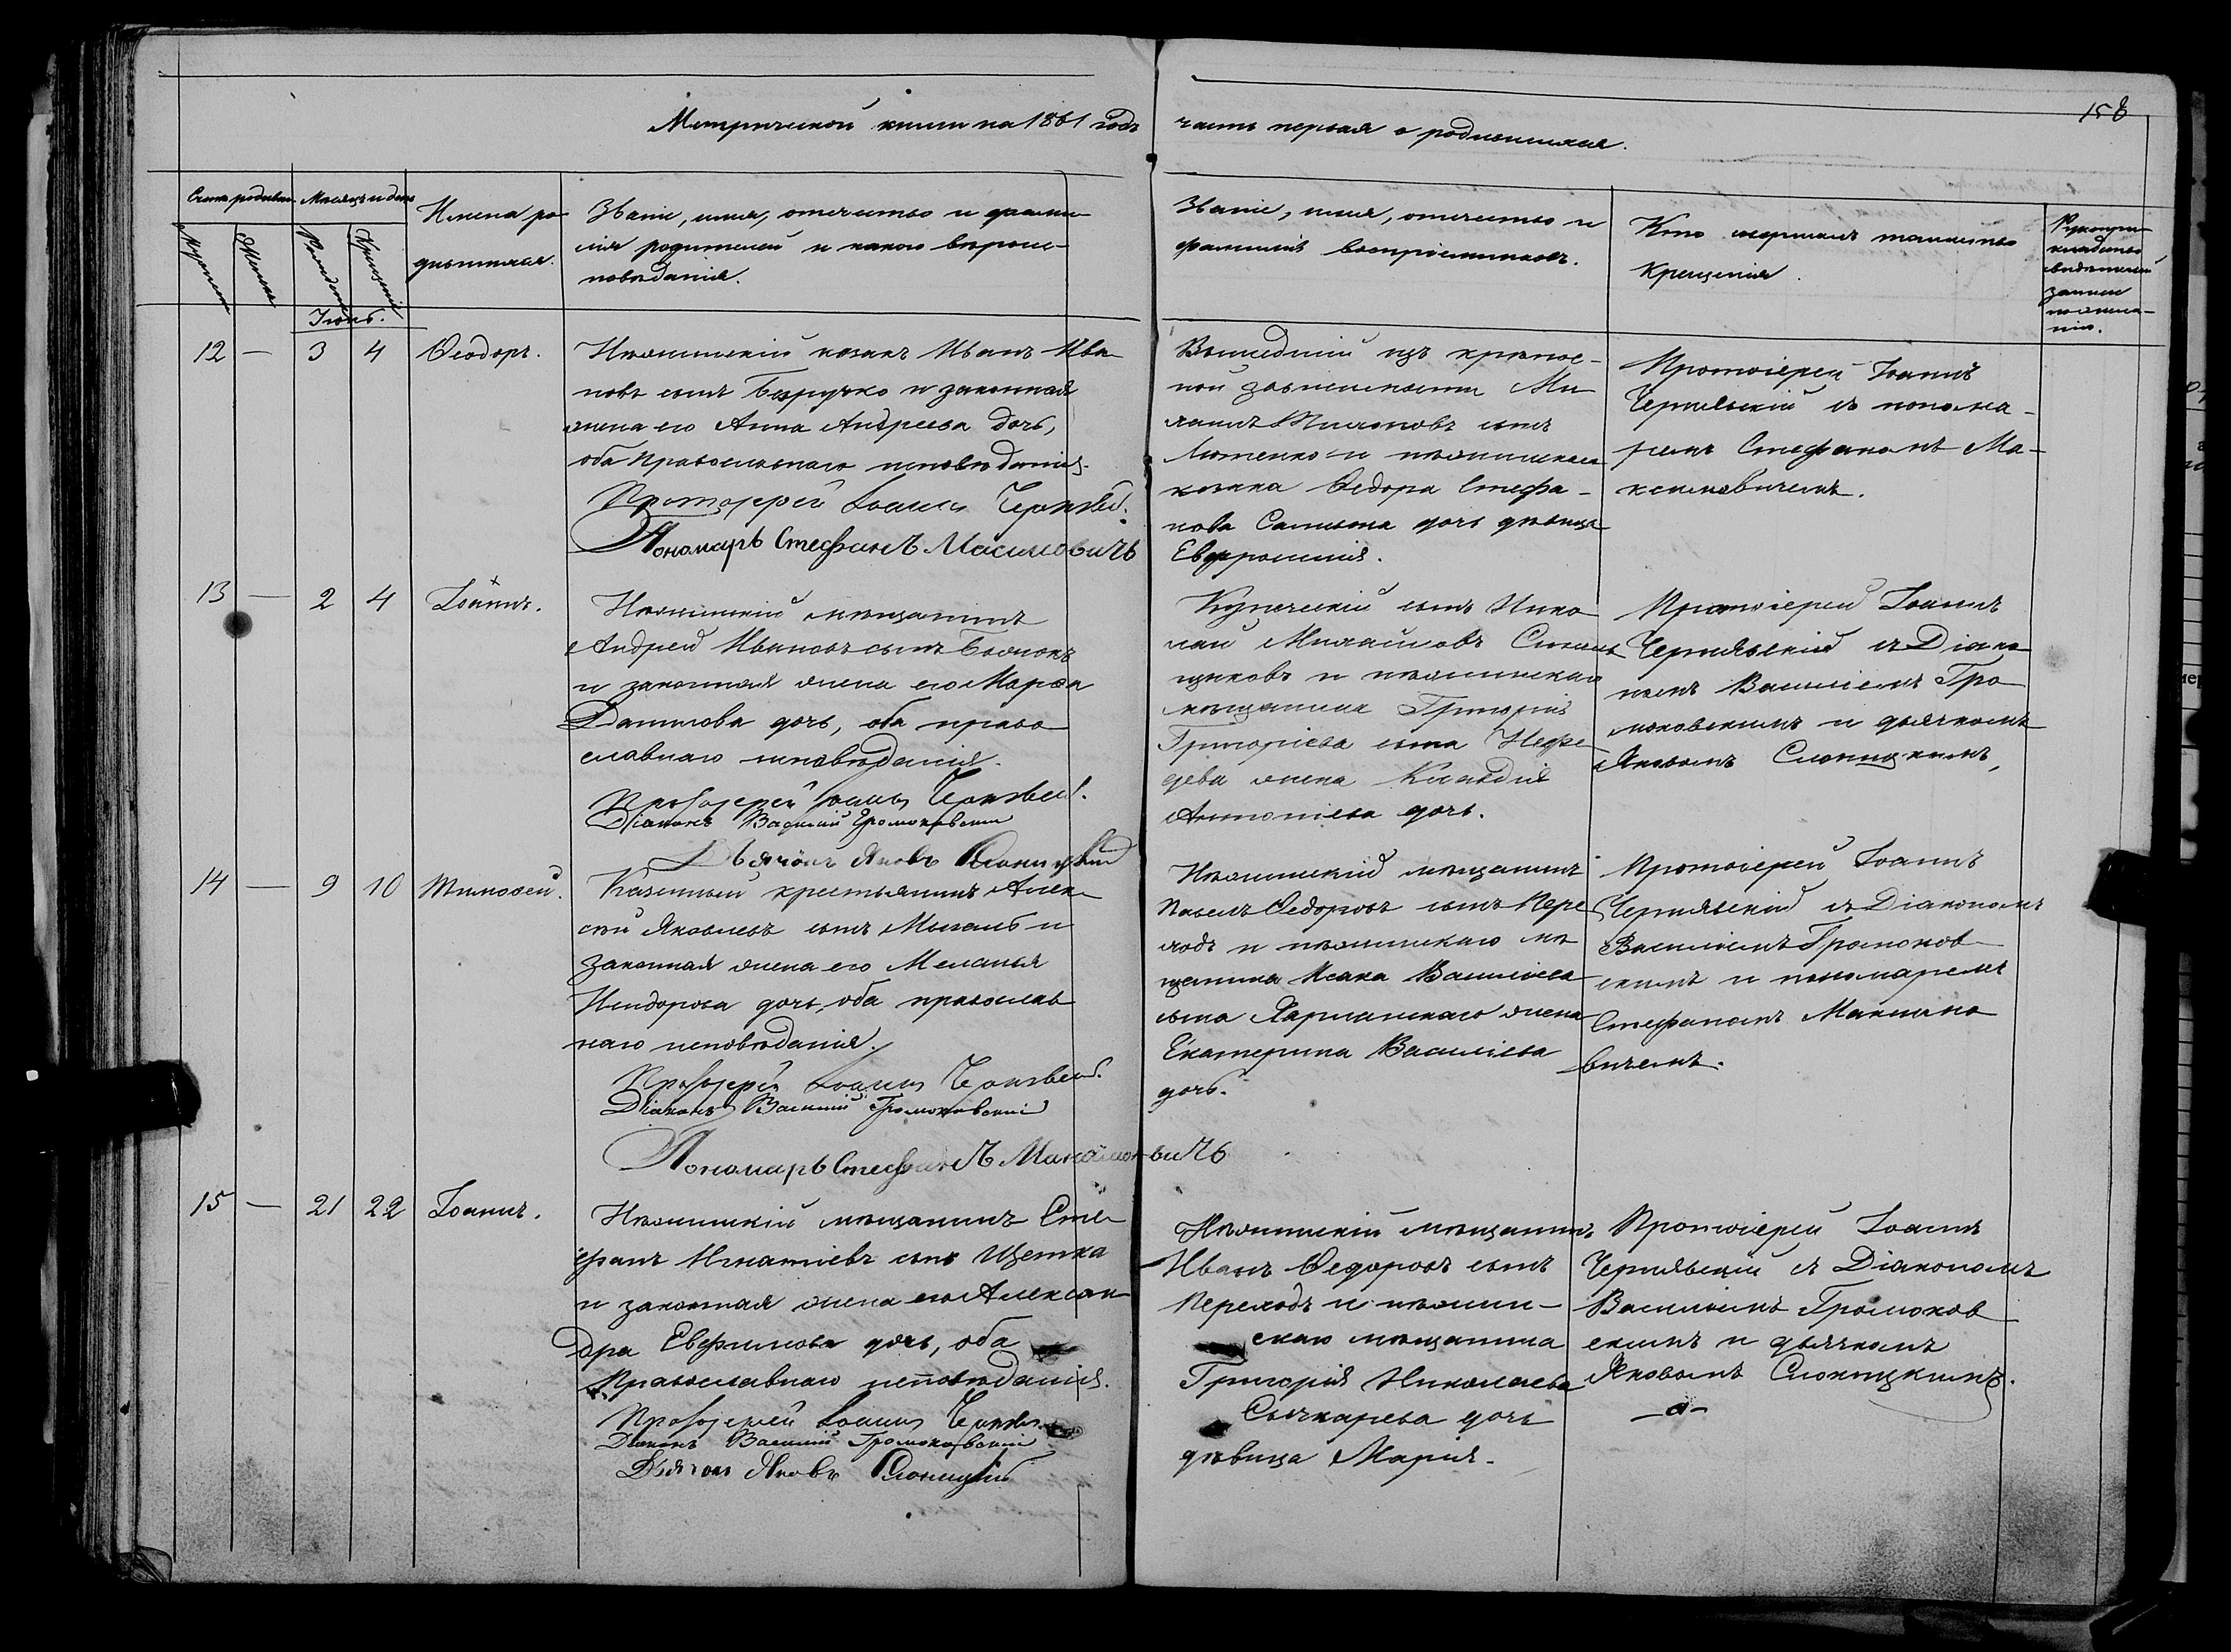 158
Метрической книги на 1861 годъ
часть первая о родившихся.
Счетъ родивш.
Мѣсяцъ и день
Имена ро-
дившихся.
Званіе, имя, отчество и фами-
лія родителей и какого вѣроис-
повѣданія.
Званіе, имя, отчество и
фамилія воспріемниковъ.
Кто совершалъ таинство
Крещенія.
Рукопри-
кладство
свидѣтелей
записи
по жела-
нію.
Мужеска
Женска
Рожденія
Крещенія
Іюнь.
12 — 3 4 Ѳеодоръ.
Нѣжинскій козакъ Иванъ Ива-
новъ сынъ и законная
жена его Анна Андреева дочь,
оба Православнаго исповѣданія.
Протоіерей Іоаннъ Чернявскій.
Пономарь Стефанъ Масимовичъ
Вышедшій изъ крѣпос-
ной зависимости Ми-
сынъ
Лютенко и нѣжинскаго
козака Ѳедора Стефа-
нова дочь дѣвица
Евфросинія.
Протоіерей Іоаннъ
Чернявскій съ понома-
ремъ Стефаномъ Ма-
ксимовичемъ.
13 — 2 4 Іоаннъ.
Нѣжинскій мѣщанинъ
Андрей Ивановъ сынъ
и законная жена его Марѳа
Данилова дочь, оба право
славнаго исповѣданія.
Протоіерей Іоаннъ Чернявскій.
Діаконъ Василій Громоковскій
Дьячокъ Яковъ Слоницкій
Купеческій сынъ Нико
лай Михайловъ
и нѣжинскаго
мѣщанина Григорія
Григоріева сына Нефе
дева жена Клавдія
Антоніева дочь.
Протоіерей Іоаннъ
Чернявскій съ Діако
номъ Василіемъ Гро
моковскимъ и дьячкомъ
Яковомъ Слоницкимъ,
14 — 9 10 Тимоѳей.
Казенный крестьянинъ Алек
сѣй Яковлевъ сынъ и
законная жена его Меланія
Исидорова дочь, оба православ
наго исповѣданія.
Протоіерей Іоаннъ Чернявскій.
Діаконъ Василій Громоковскій
Пономарь Стефанъ Максимовичъ
Нѣжинскій мѣщанинъ
Павелъ Ѳедоровъ сынъ Пере
ходъ и нѣжинскаго мѣ
щанина Исака Василіева
сына Харланскаго жена
Екатерина Василіева
дочь.
Протоіерей Іоаннъ
Чернявскій съ Діакономъ
Василіемъ Громоков
скимъ и пономаремъ
Стефаномъ Максимо
вичемъ.
15 — 21 22 Іоаннъ.
Нѣжинскій мѣщанинъ Сте
фанъ Игнатіевъ сынъ Щетка
и законная жена его Алексан
дра Евфимова дочь, оба
Православнаго исповѣданія.
Протоіерей Іоаннъ Чернявс.
Діаконъ Василій Громоковскій
Дьячокъ Яковъ Слоницкій
Нѣжинскій мѣщанинъ
Иванъ Ѳедоровъ сынъ
Переходъ и нѣжин-
скаго мѣщанина
Григорія Николаева
Сычкарева дочь
дѣвица Марія.
Протоіерей Іоаннъ
Чернявскій съ Діакономъ
Василіемъ Громоков
скимъ и дьячкомъ
Яковомъ Слоницкимъ.